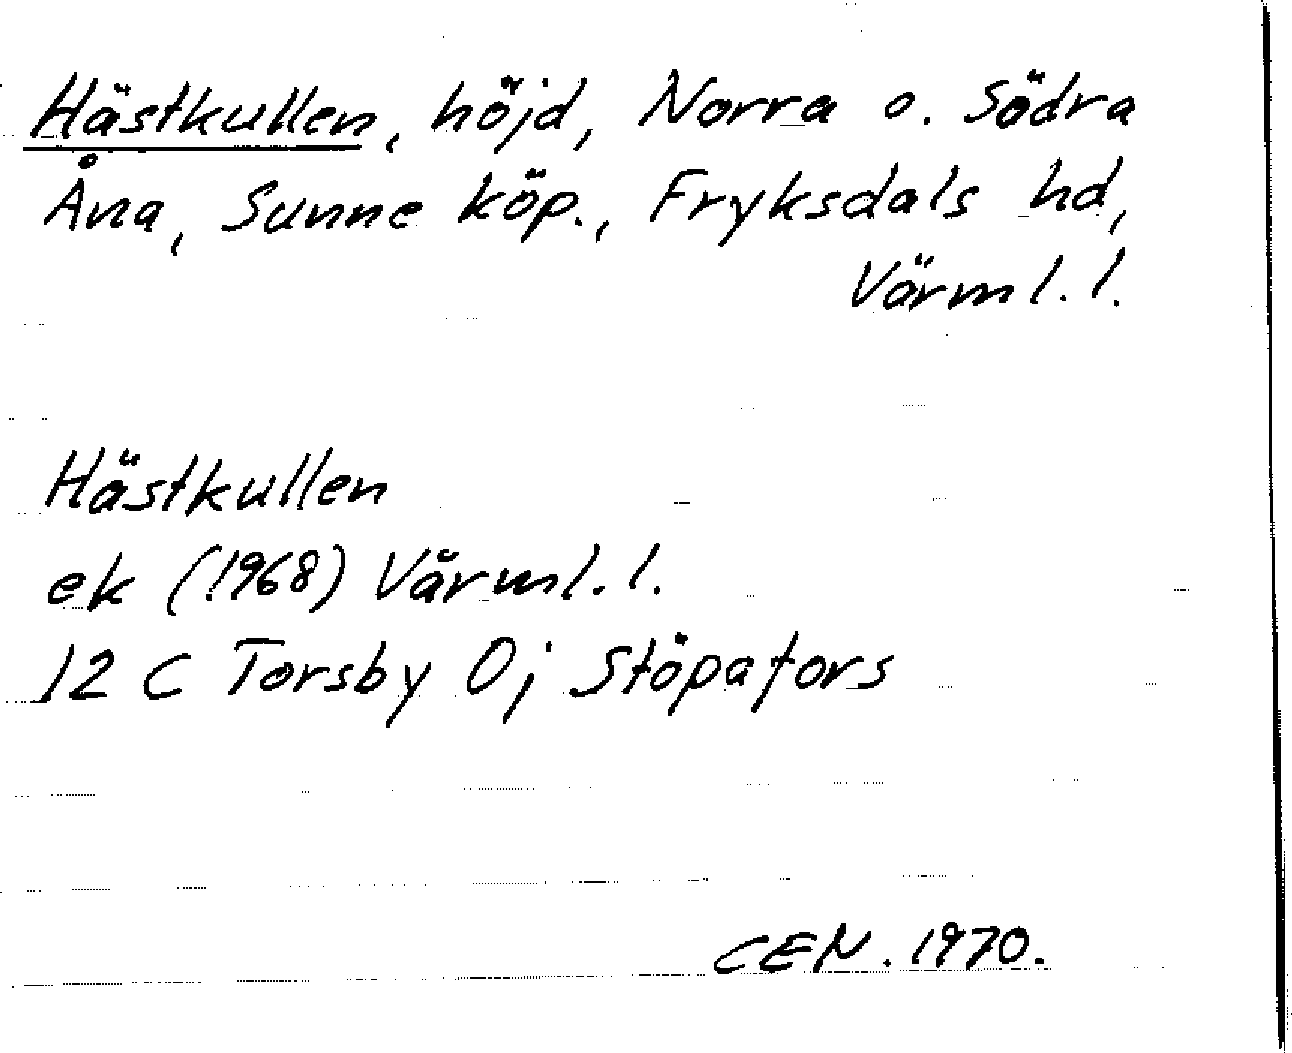 Hästkullen, höjd, Norra o. Södra
Åna, Sunne köp., Fryksdals hd,
Värml. l.
Hästkullen
ek (1968) Värml. l.
12 C Torsby Oj Stöpafors
CEN. 1970.